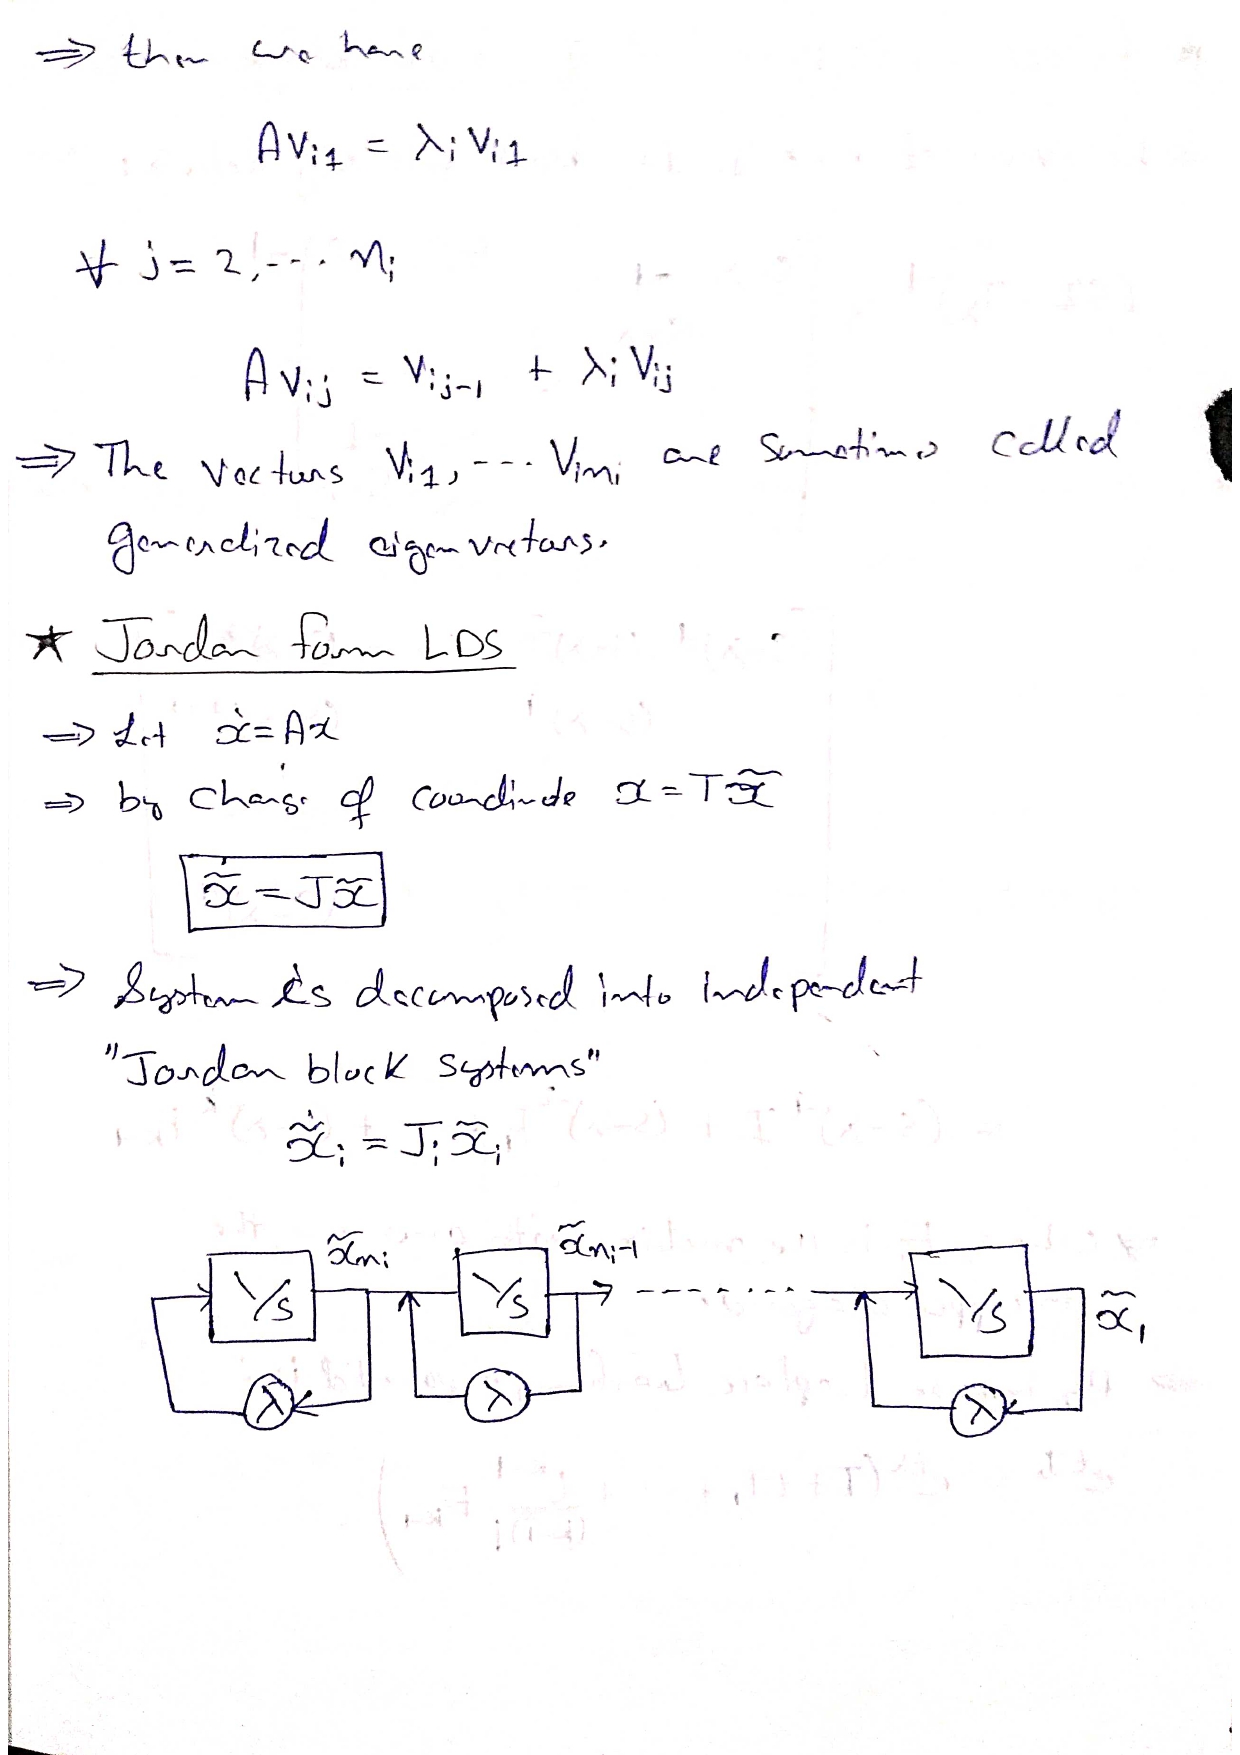 ⇒ then we have
Avi1 = λi Vi1
∀ j = 2, --- ni
A Vij = Vij-1 + λi Vij
⇒ The vectors Vi1, --- Vini are sometimes called
generalized eigenvectors.
★ Jordan form LDS
⇒ Let ẋ = Ax
⇒ by change of coordinate x = Tx̃
x̃̇ = Jx̃
⇒ System is decomposed into independent
"Jordan block systems"
x̃̇i = Ji x̃i
x̃ni x̃ni-1
1/s 1/s ------- 1/s x̃1
λ λ λ